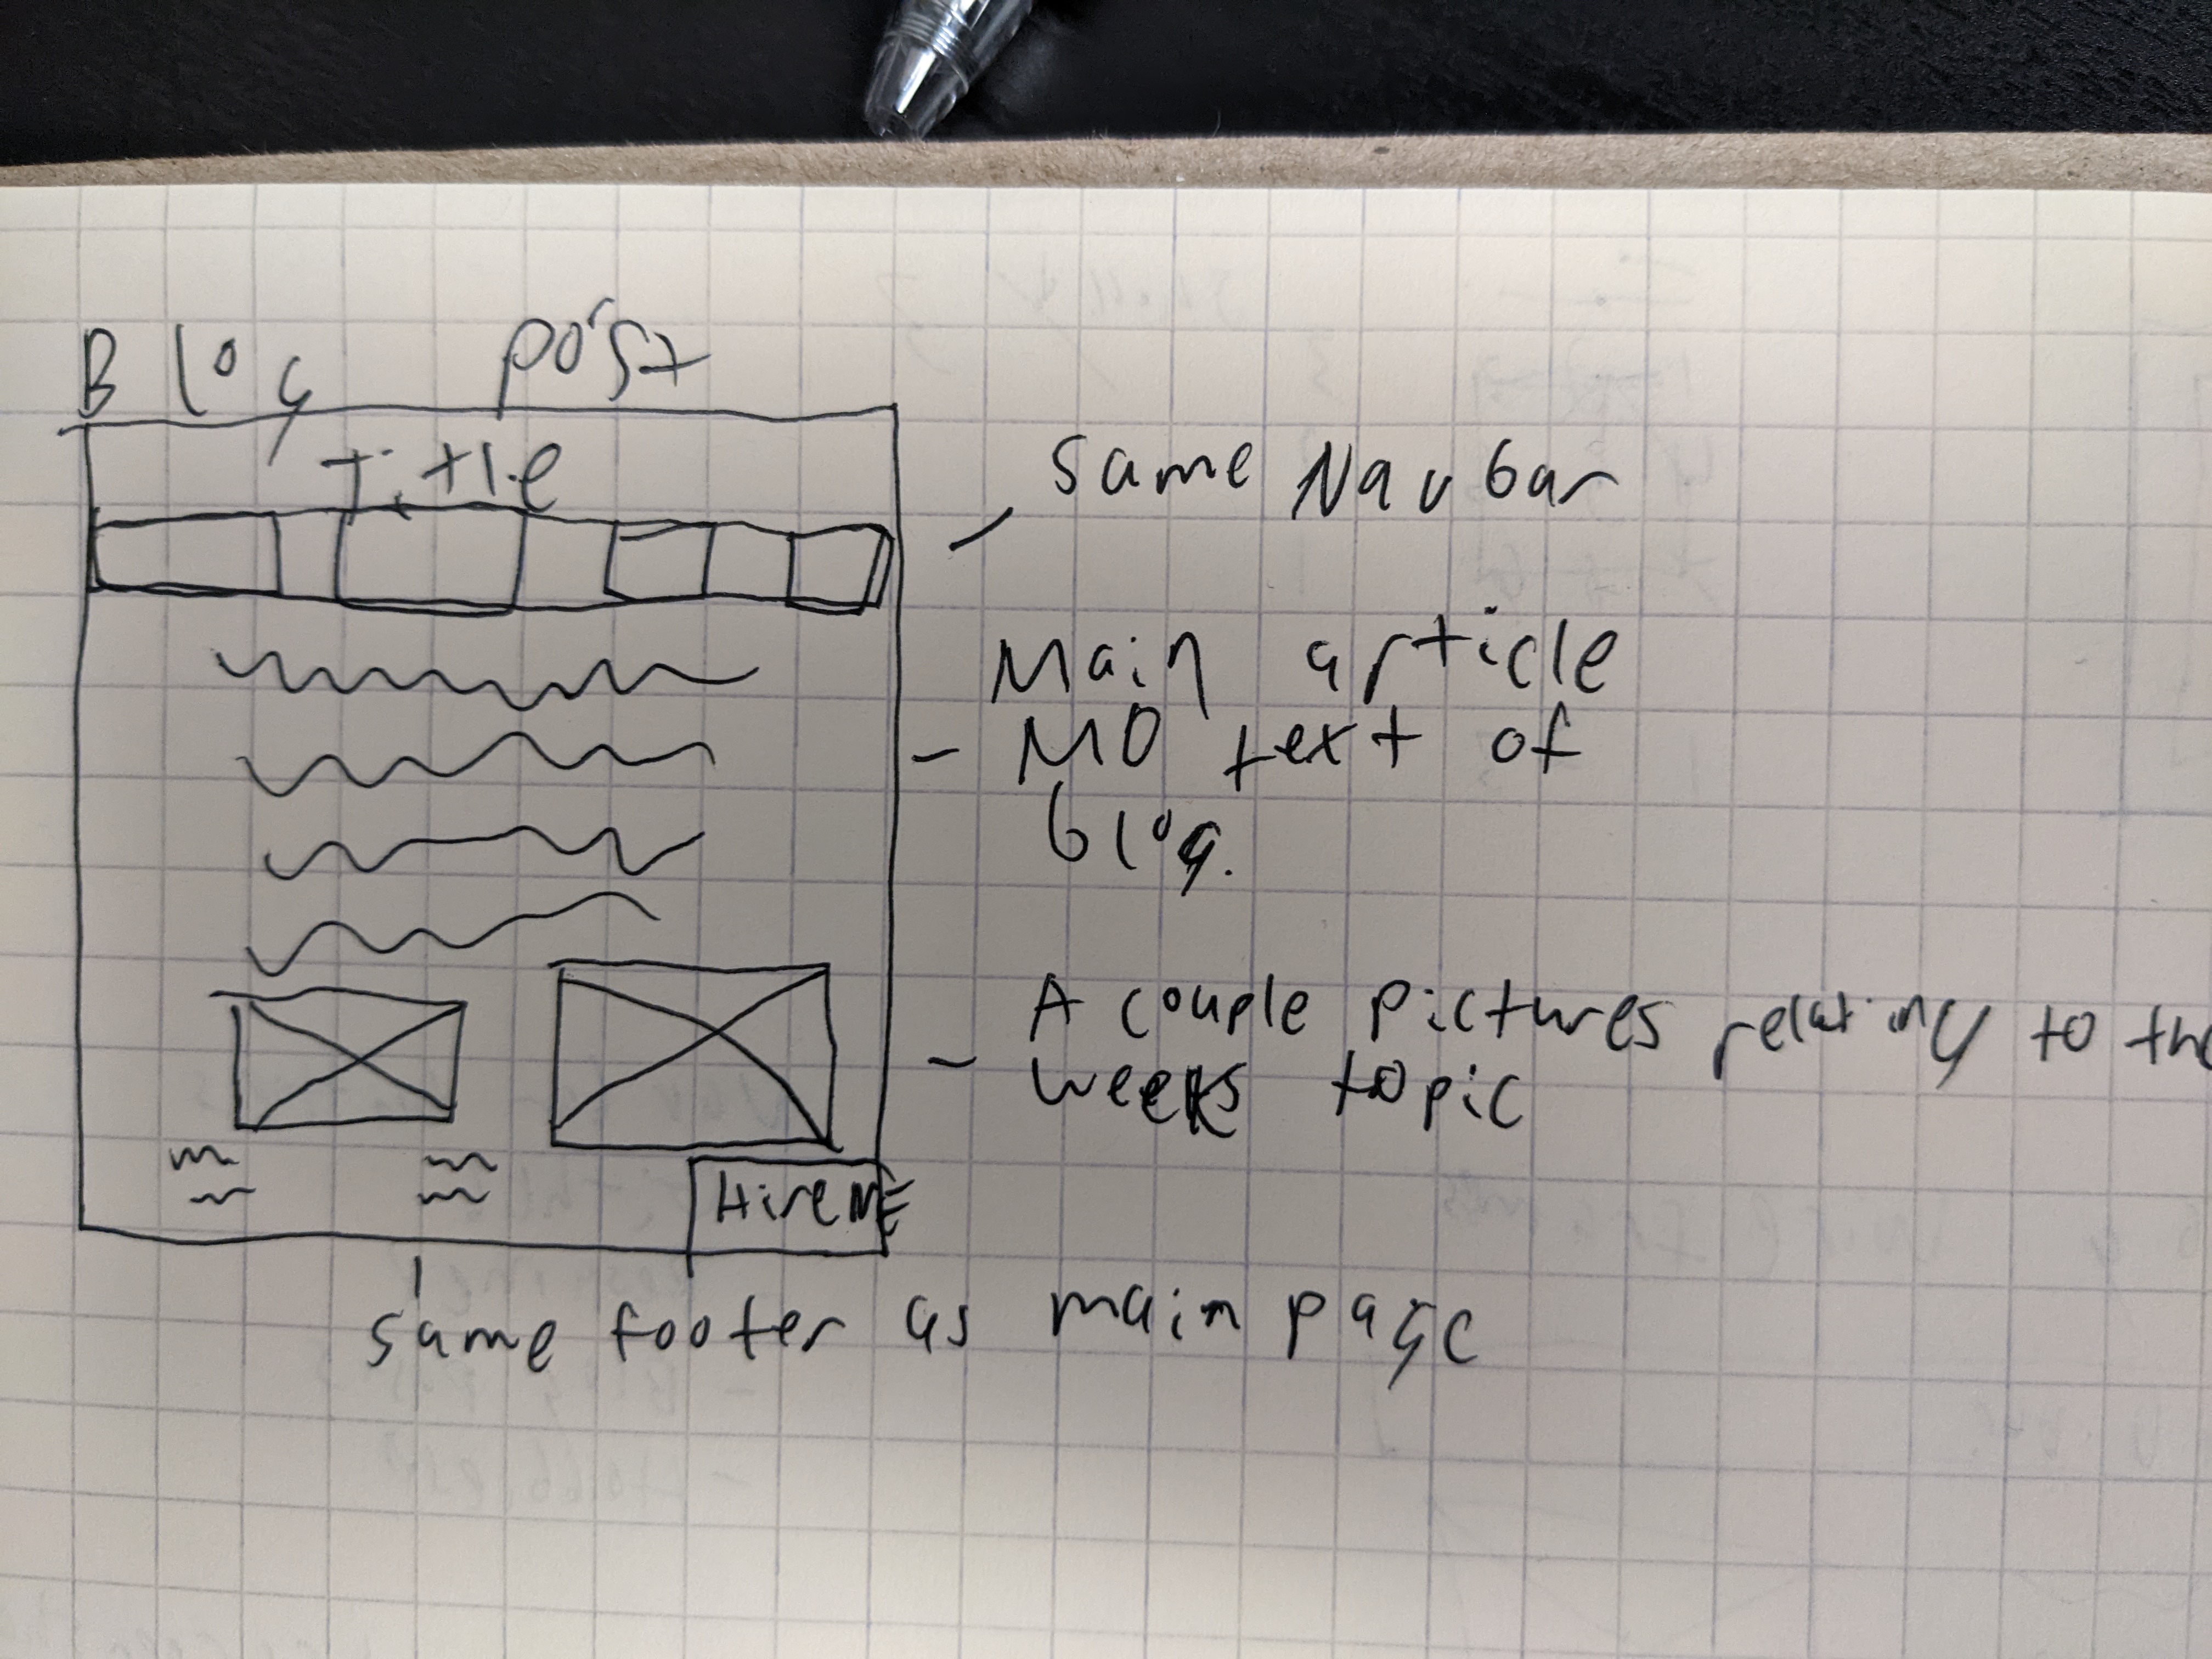 Blog post
Title
same Navbar
Main article
MD text of
blog.
A couple pictures relating to the
weeks topic
Hire ME
same footer as main page